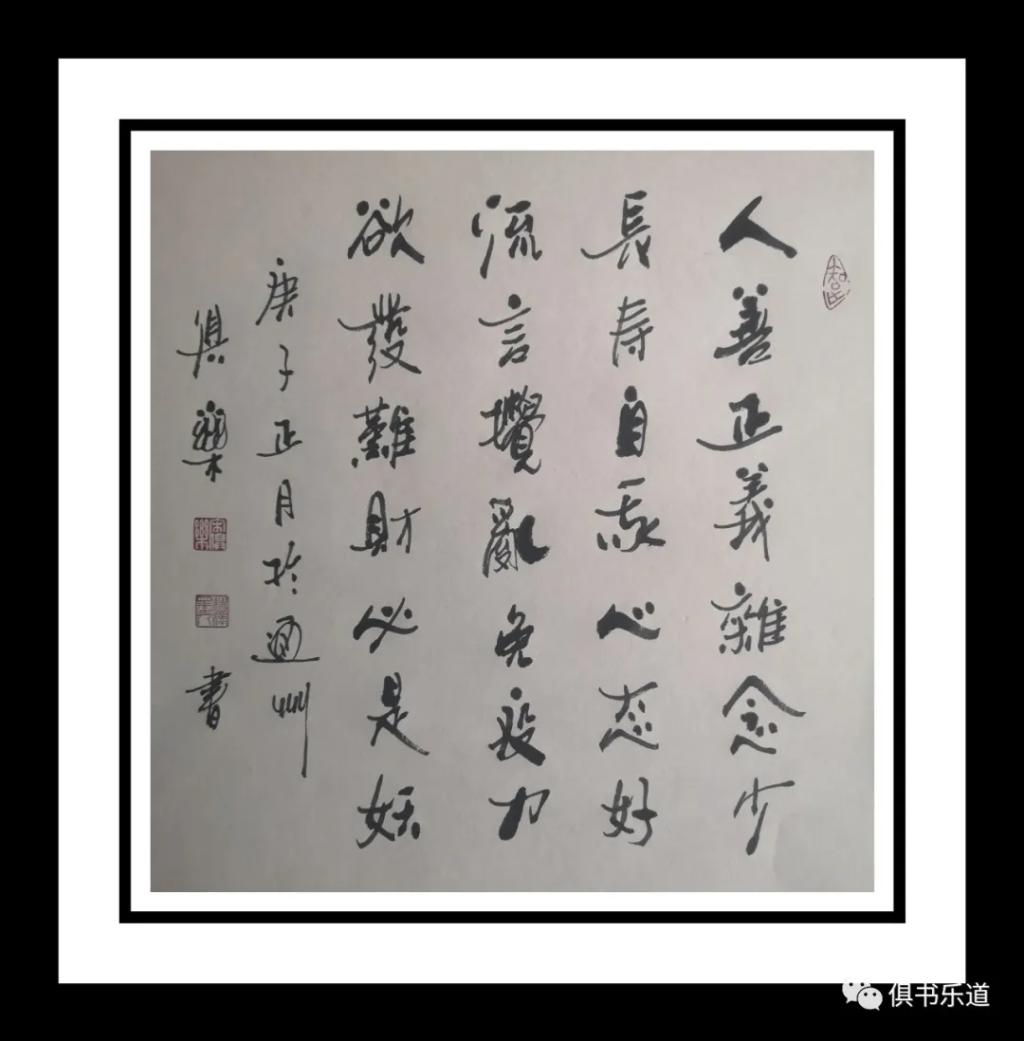 人善正義雜念少
長寿自然心态好
流言攪亂免疫力
欲發難財必是妖
庚子正月於通州
俱樂
書
俱书乐道